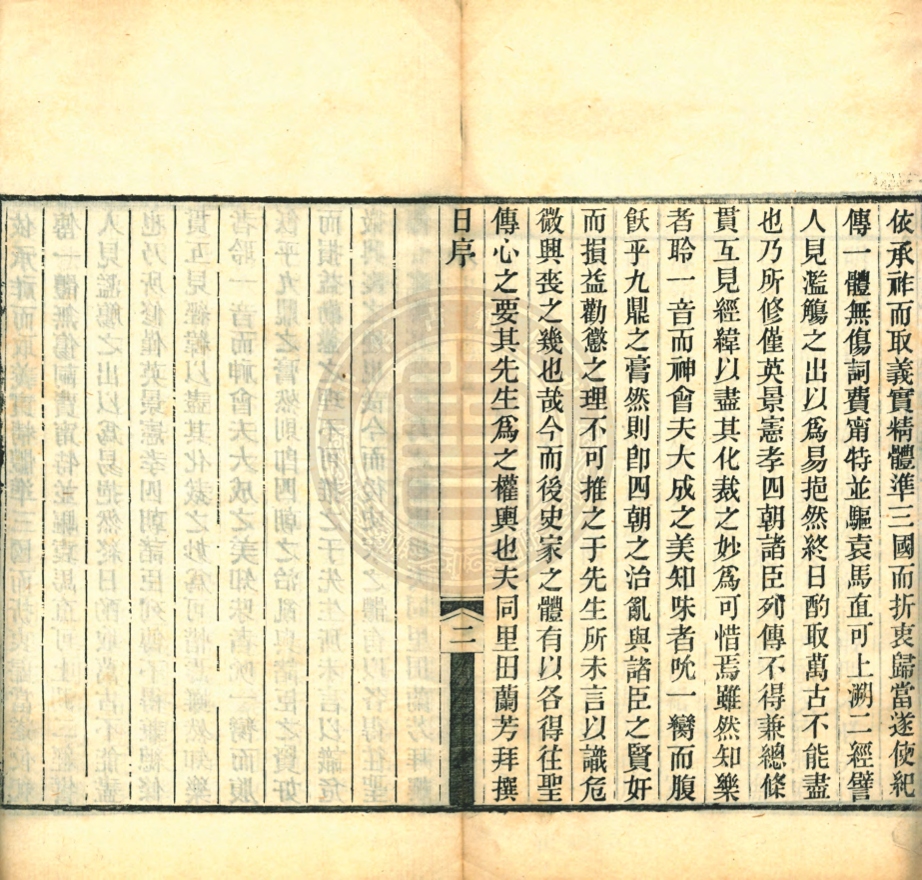 依承祚而取義實精體準三國而折衷歸當遂使紀
傳一體無傷詞費甯特並驅袁馬直可上溯二經譬
人見濫觴之出以爲易挹然終日酌取萬古不能盡
也乃所修僅英景憲孝四朝諸臣列傳不得兼總條
貫互見經緯以盡其化裁之妙爲可惜焉雖然知樂
者聆一音而神會夫大成之美知味者吮一臠而腹
飫乎九鼎之膏然則卽四朝之治亂與諸臣之賢奸
而損益勸懲之理不可推之于先生所未言以識危
微興喪之幾也哉今而後史家之體有以各得往聖
傳心之要其先生爲之權輿也夫同里田蘭芳拜撰
日序
二